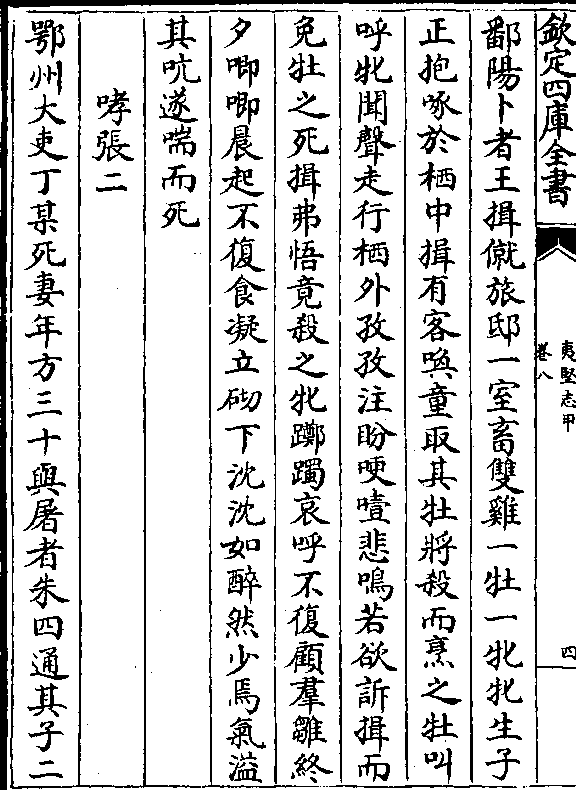 欽定四庫全書
夷堅志甲
卷八
四
鄱陽卜者王揖僦旅邸一室畜雙雞一牡一牝牝生子
正抱啄於栖中揖有客喚童取其牡將殺而烹之牡叫
呼牝聞聲走行栖外孜孜注盼哽噎悲鳴若欲訴揖而
免牡之死揖弗悟竟殺之牝躑躅哀呼不復顧羣雛終
夕唧唧晨起不復食凝立砌下沈沈如醉然少焉氣溢
其吭遂喘而死
哮張二
鄂州大吏丁某死妻年方三十與屠者朱四通其子二